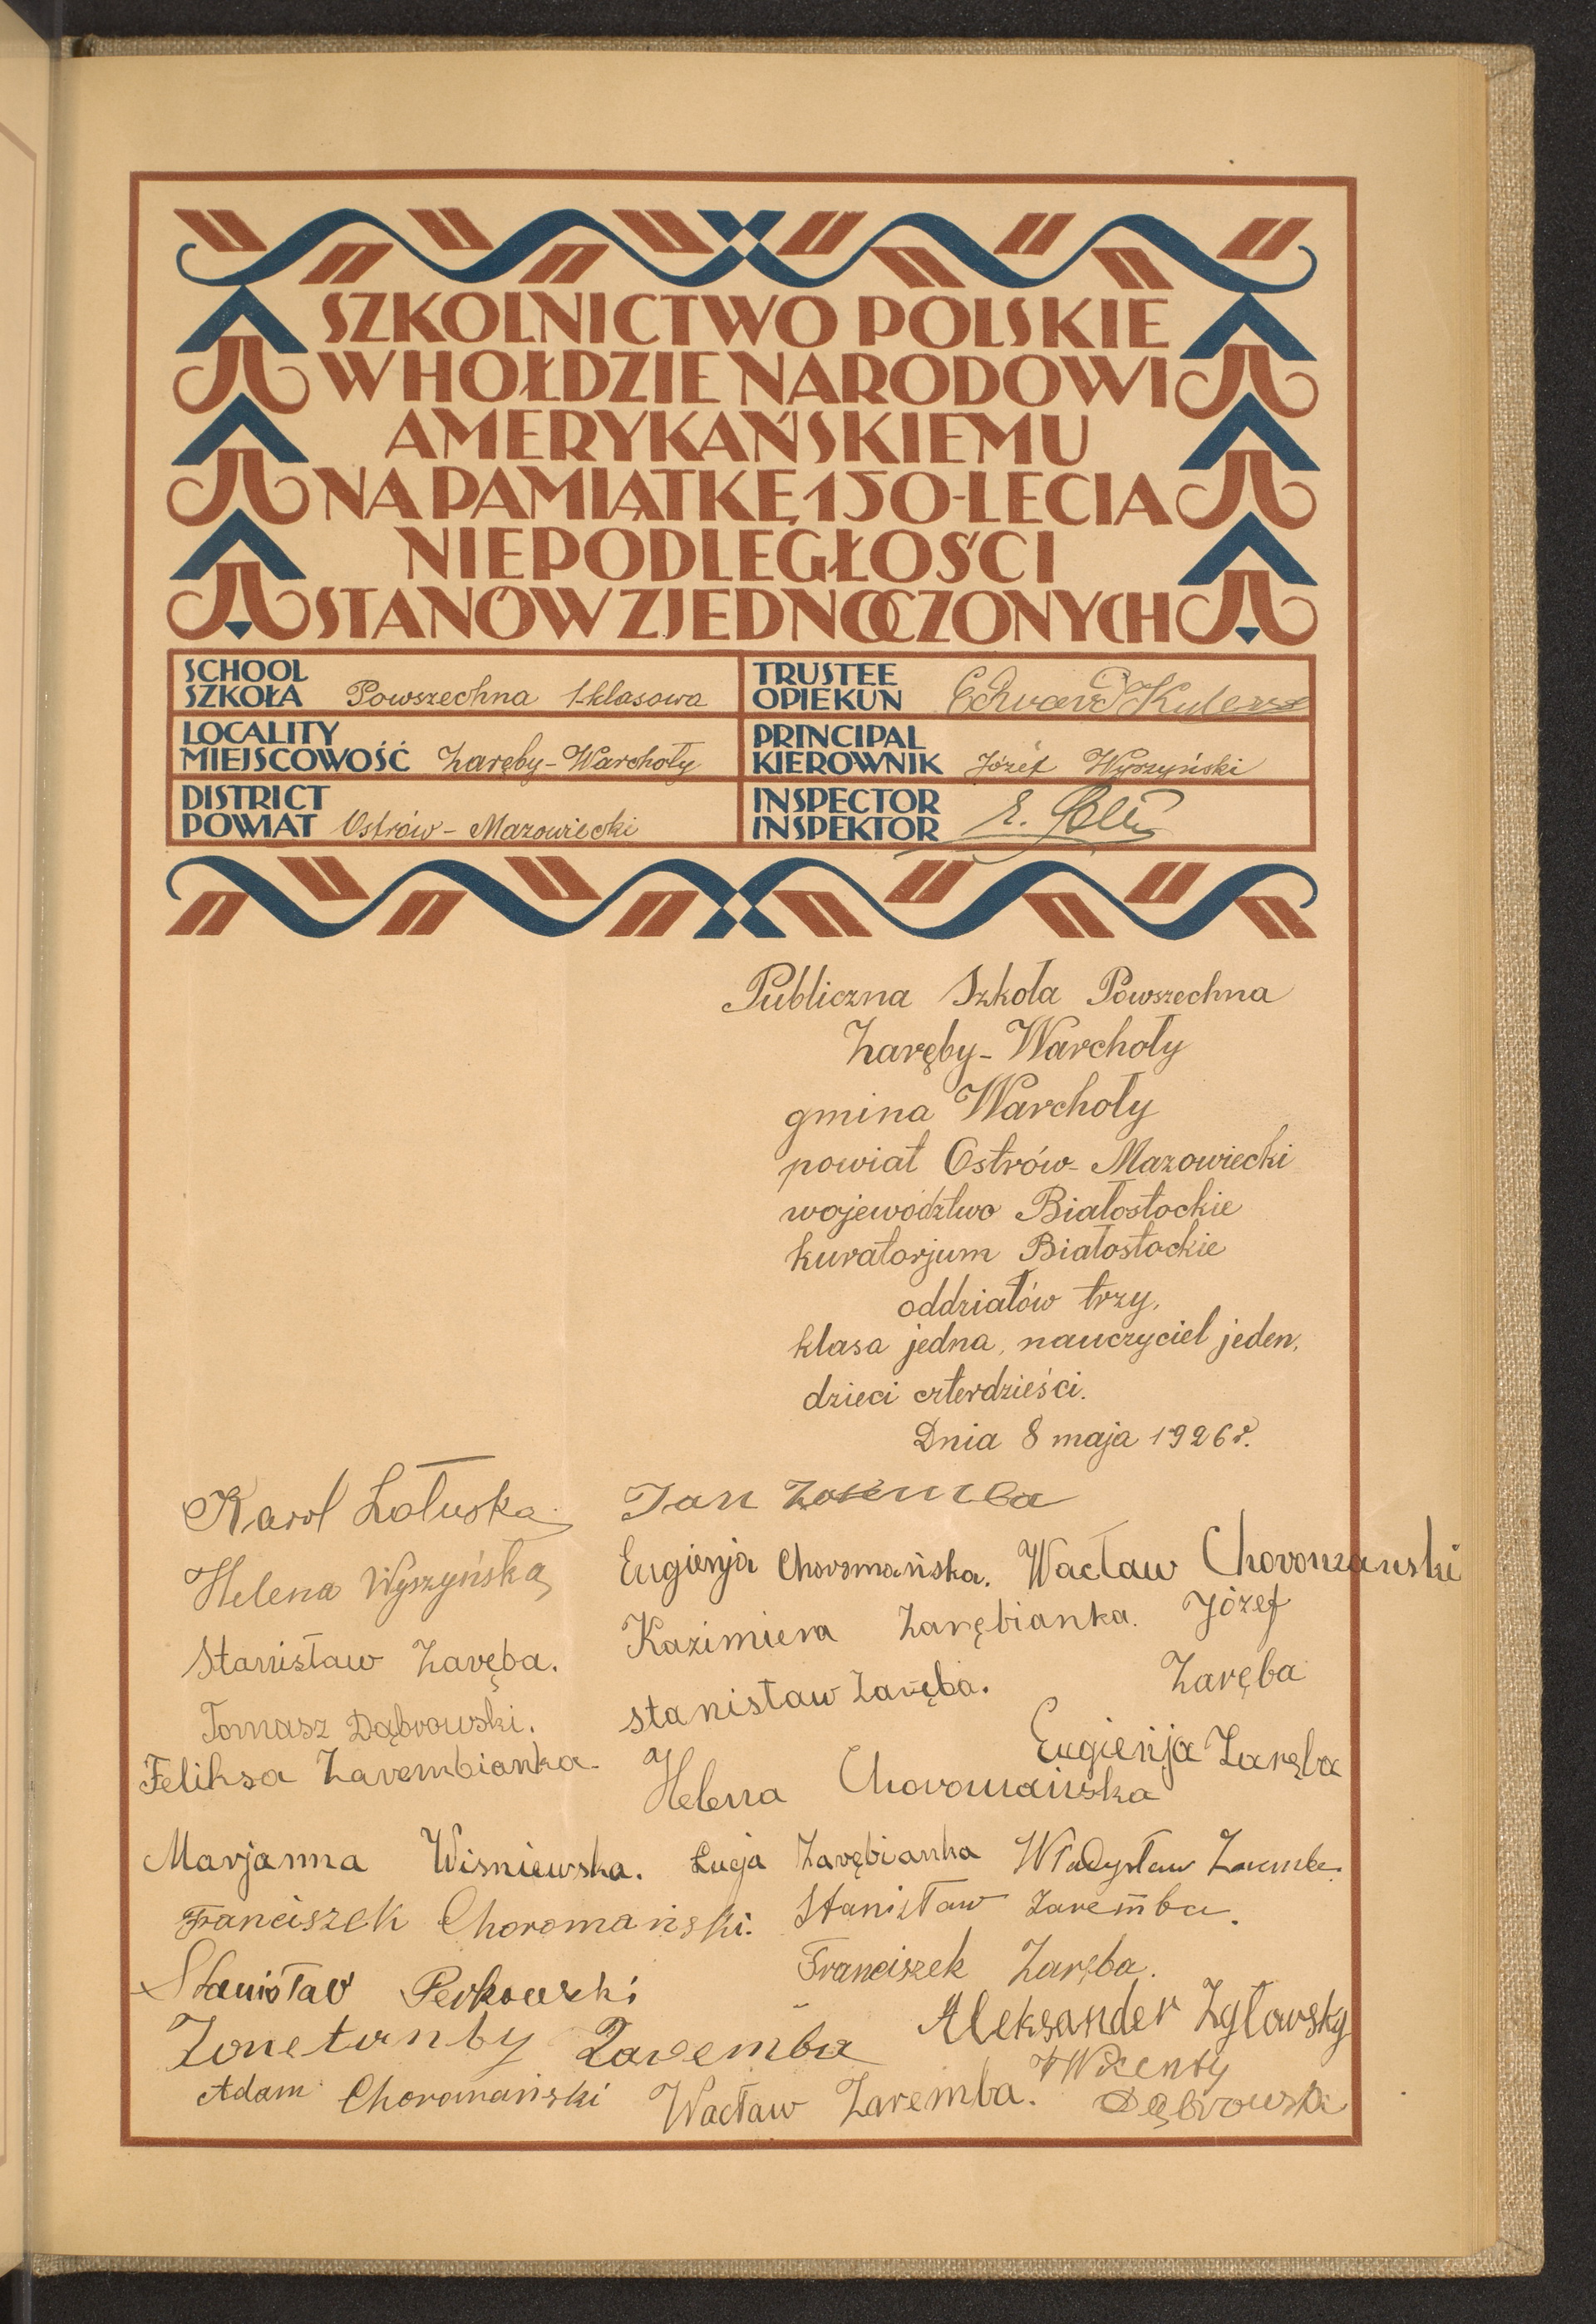 SZKOLNICTWO POLSKIE
W HOŁDZIE NARODOWI
AMERYKAŃSKIEMU
NA PAMIĄTKĘ 150-LECIA
NIEPODLEGŁOŚCI
STANÓW ZJEDNOCZONYCH
SCHOOL
SZKOŁA Powszechna 1-klasowa
TRUSTEE
OPIEKUN
LOCALITY
MIEJSCOWOŚĆ Zaręby-Warchoły
PRINCIPAL
KIEROWNIK Józef Wyszyński
DISTRICT
POWIAT Ostrów-Mazowiecki
INSPECTOR
INSPEKTOR E.
Publiczna Szkoła Powszechna
Zaręby-Warchoły
gmina Warchoły
powiat Ostrów-Mazowiecki
województwo Białostockie
kuratorjum Białostockie
oddziałów trzy,
klasa jedna, nauczyciel jeden,
dzieci czterdzieści.
Dnia 8 maja 1926 r.
Karol Załuska
Jan
Helena Wyszyńska
Eugienja Choromańska. Wacław Choromanski
Kazimiera Zarębianka. Józef
Zaręba
Stanisław Zaręba.
stanisław Zaręba.
Tomasz Dąbrowski.
Eugienja Zaręba
Feliksa Zarembianka.
Helena Choromańska
Marjanna Wisniewska. Łucja Zarębianka Władysław
Franciszek Choromański. Stanisław Zaremba.
Franciszek Zaręba.
Stanisław Perkowski
Aleksander Zgłowsky
Zaremba
Wicenty
Dąbrowski
Adam Choromański Wacław Zaremba.